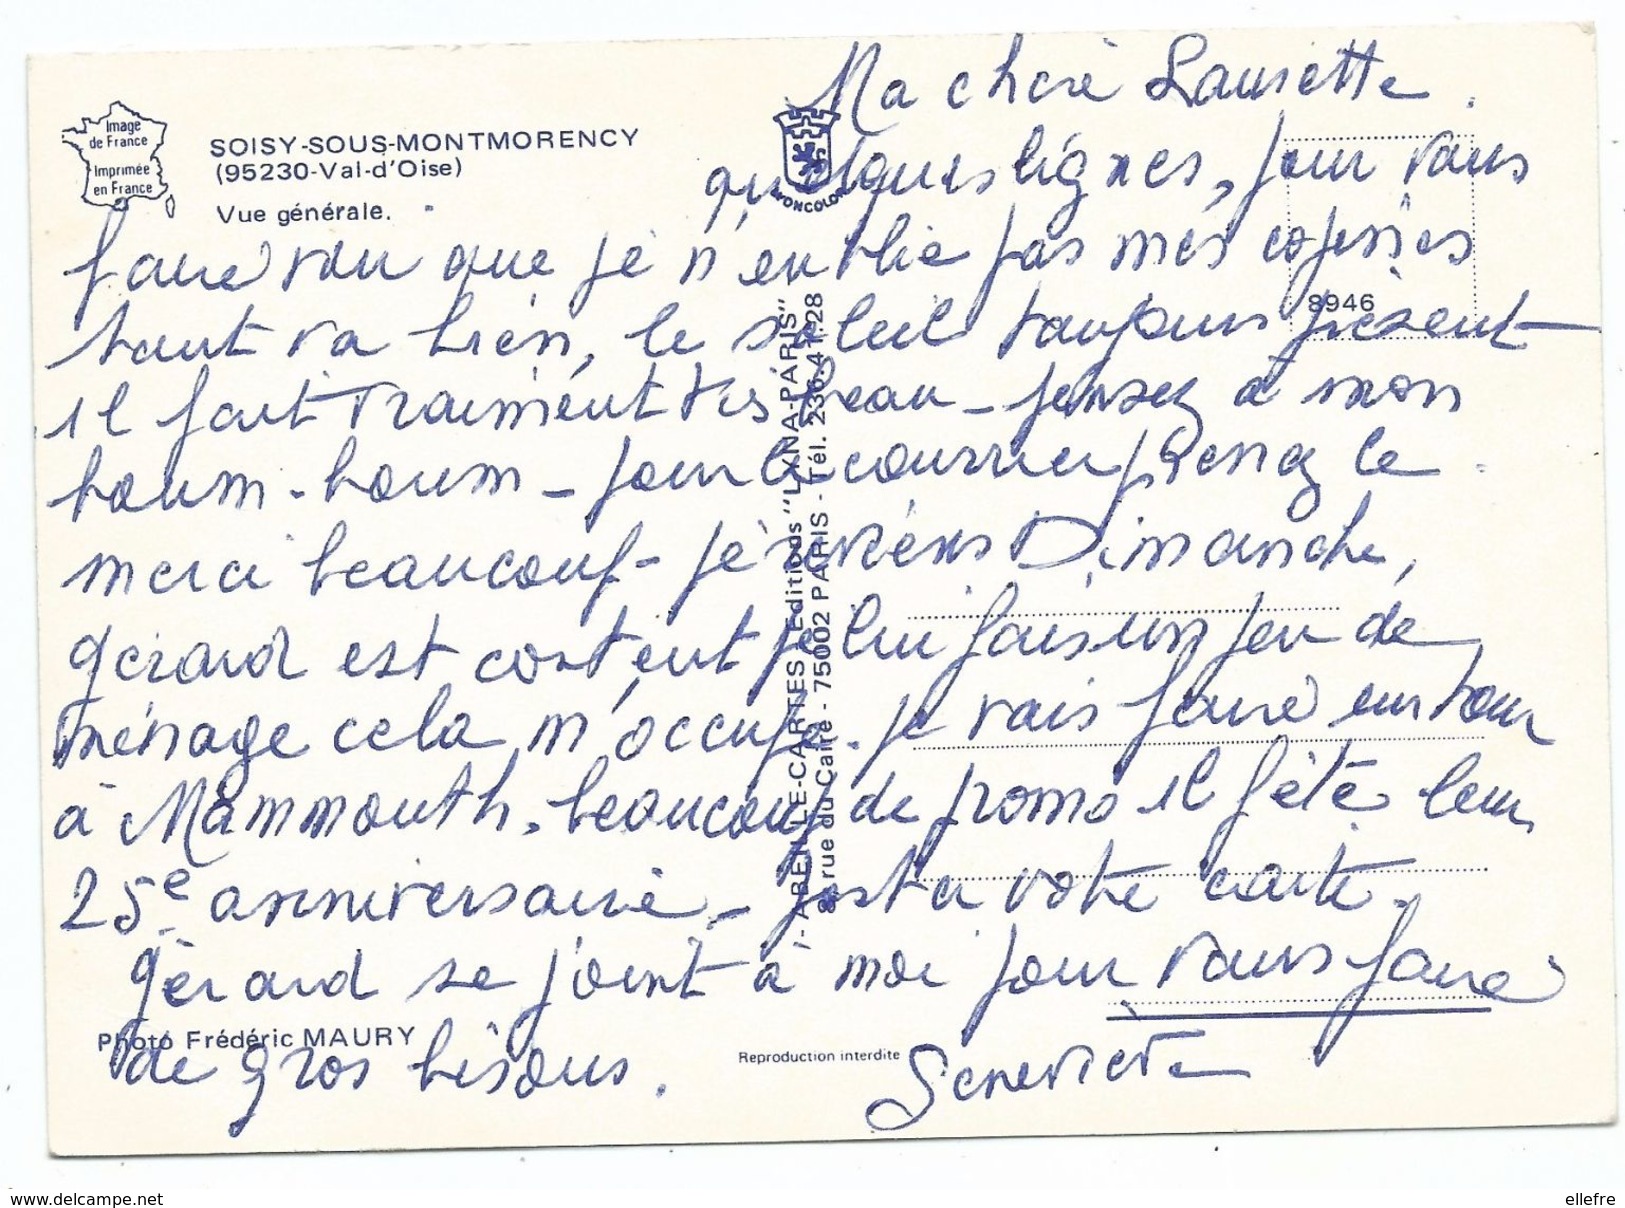 Ma chère Laurette.
Image
de France
Imprimée
en France
SOISY-SOUS-MONTMORENCY
(95230-Val-d'Oise)
Vue générale.
YVONCOLOR
quelques lignes, pour vous
faire voir que je n'oublie pas mes copines
8946
tout va bien, le soleil toujours présent
il fait vraiment très beau - pensez à mon
boum-boum - pour le courrier prenez le.
merci beaucoup - je reviens Dimanche,
gérard est content je lui fais un peu de
ménage cela m'occupe. je vais faire un tour
à Mammouth. beaucoup de promo il fête leur
25e anniversaire - votre carte.
gérard se joint à moi pour vous faire
de gros bisous.
Genevieve
Photo Frédéric MAURY
Reproduction interdite
- ABEILLE-CARTES - Editions "LYNA-PARIS" -
8, rue du Caire - 75002 PARIS - Tél. 236.41.28
www.delcampe.net
ellefre